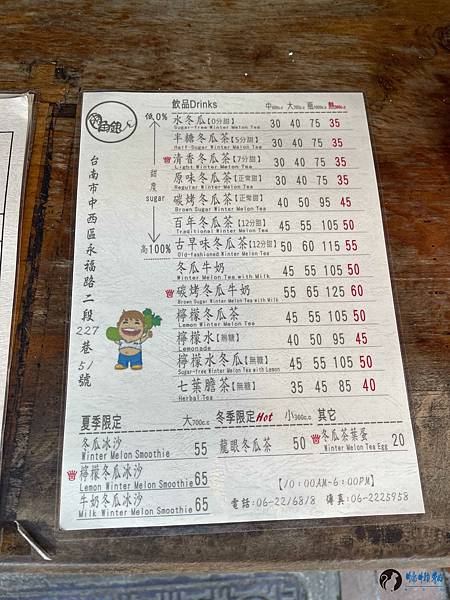 飲品Drinks 中500c.c 大700c.c 瓶1000c.c 熱360c.c
低0%
水冬瓜【0分甜】 30 40 75 35
Sugar-free Winter Melon Tea
半糖冬瓜茶【5分甜】 30 40 75 35
Half-Sugar Winter Melon Tea
清香冬瓜茶【7分甜】 30 40 75 35
Light Winter Melon Tea
原味冬瓜茶【正常甜】 30 40 75 35
Regular Winter Melon Tea
碳烤冬瓜茶【正常甜】 40 50 95 45
Brown Sugar Winter Melon Tea
百年冬瓜茶【12分甜】 45 55 105 50
Traditional Winter Melon Tea
古早味冬瓜茶【12分甜】 50 60 115 55
Old-fashioned Winter Melon Tea
甜度
sugar
高100%
冬瓜牛奶 45 55 105 50
Winter Melon Tea with Milk
碳烤冬瓜牛奶 55 65 125 60
Brown Sugar Winter Melon Tea with Milk
檸檬冬瓜茶 45 55 105 50
Lemon Winter Melon Tea
檸檬水【無糖】 40 50 95 45
Lemonade
檸檬水冬瓜【無糖】 45 55 105 50
Sugar-free Winter Melon Tea with Lemon
七葉膽茶【無糖】 35 45 85 40
Herbal Tea
台南市中西區永福路二段227巷51號
夏季限定 大700c.c
冬瓜冰沙 55
Winter Melon Smoothie
檸檬冬瓜冰沙 65
Lemon Winter Melon Smoothie
牛奶冬瓜冰沙 65
Milk Winter Melon Smoothie
冬季限定Hot 小360c.c
龍眼冬瓜茶 50
其它
冬瓜茶葉蛋 20
Winter Melon Tea Egg
【10:00AM-6:00PM】
電話:06-2216818 傳真:06-2225958